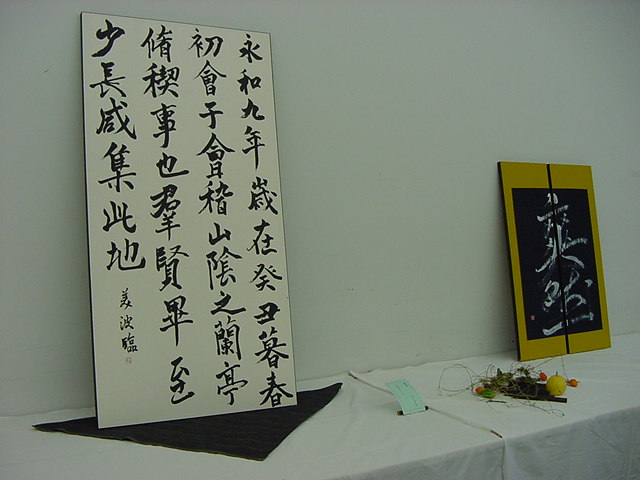 永和九年歲在癸丑暮春
初會于會稽山陰之蘭亭
脩稧事也羣賢畢至
少長咸集此地
美波臨